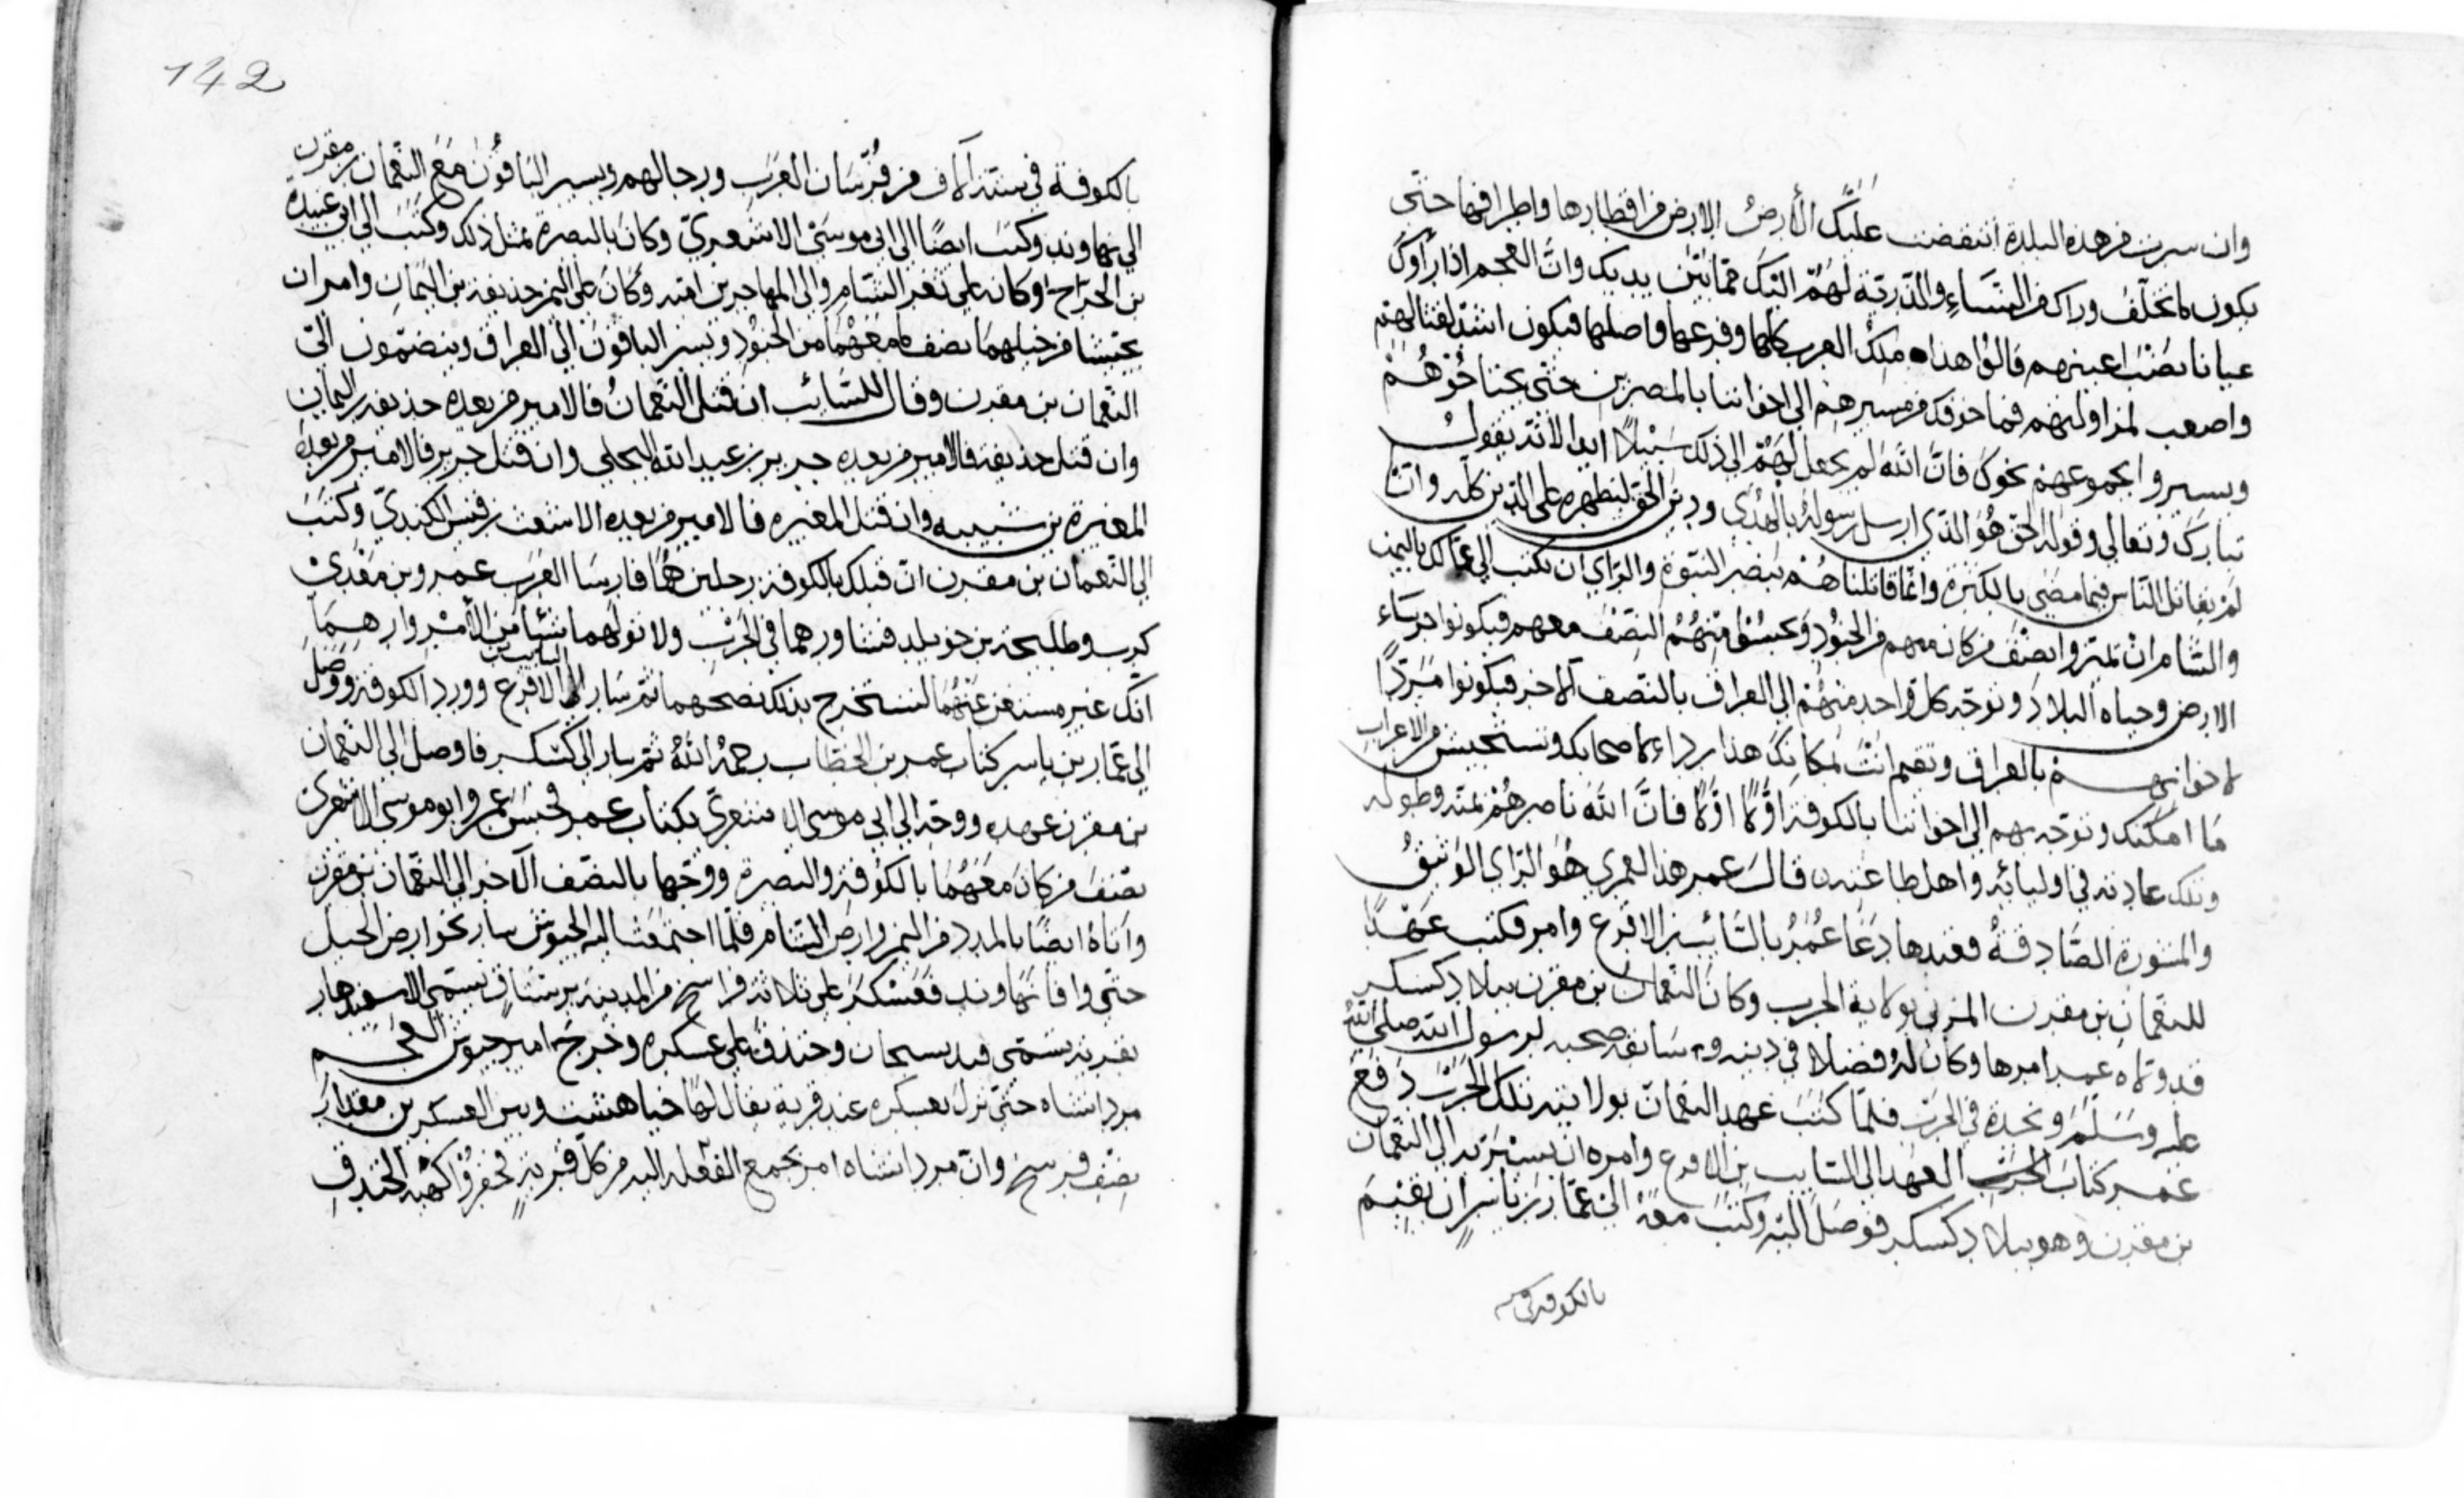 وان سرت من هذه البلدة انتقضت عليك الأرض الارض من اقطارها واطرافها حتى
يكون ما تخلف وراك من النساء والذرية لهم اليك مما بين يديك وان العجم اذا رأوك
عيانا نصب اعينهم قالوا هذا ملك العرب كلها وفرعها واصلها فيكون اشد لقتالهم
واصعب لمزاولتهم فما خوفك من مسيرهم الى اخواننا بالمصرين حتى يجتاحوهم
ويسيروا بجموعهم نحوك فان الله لم يجعل لهم الى ذلك سبيلا ابدا لانه يقول
تبارك وتعالى وقوله الحق هو الذي ارسل رسوله بالهدى ودين الحق ليظهره على الدين كله وانا
لم نقاتل الناس فيما مضى بالكثرة وانما قاتلناهم بنصر النبوة والراي ان تكتب الى عمالك باليمن
والشام ان تميزوا نصف من كان معهم من الجنود منهم النصف معهم فيكونوا حرساء
الارض وحياه البلاد وتوجه كل واحد منهم الى العراق بالنصف الاخر فيكونوا مددا
لاخوانهم بالعراق وتقيم انت بمكانك هذا رداء لاصحابك وتستجيش من الاعراب
ما امكنك وتوجه بهم الى اخواننا بالكوفة اولا اولا فان الله ناصرهم بمنه وطوله
وتلك عادته في اوليائه واهل طاعته قال عمر هذا لعمري هو الراي الوثيق
والمشورة الصادقة فعندها دعا عمر بالسائب بن الاقرع وامر فكتب عهدا
للنعمان بن مقرن المزني بولاية الحرب وكان النعمان بن مقرن ببلاد كسكر
قد ولاه عمر امرها وكان له فضلا في دينه وسابقه صحبه لرسول الله صلى الله
عليه وسلم ونجدة في الحرب فلما كتب عهد النعمان بولايته تلك الحرب دفع
عمر كتاب الحرب العهد الى السايب بن الاقرع وامره ان يسير به الى النعمان
بن مقرن وهو ببلاد كسكر فوصل اليه وكتب معه الى عمار بن ياسر ان يقيم
بالكوفة في
142
بالكوفة في ستة الاف من فرسان العرب ورجالهم ويسير الباقون مع النعمان بن مقرن
الى نهاوند وكتب ايضا الى ابي موسى الاشعري وكان بالبصرة بمثل ذلك وكتب الى ابي عبيدة
بن الجراح وكان على ثغر الشام والى المهاجرين امية وكان على اليمن حذيفة بن اليمان وامر ان
يحتبسا من خيلهما نصف ما معهما من الجنود ويسير الباقون الى العراق وينضمون الى
النعمان بن مقرن وقال للسائب ان قتل النعمان فالامير من بعده حذيفة بن اليمان
وان قتل حذيفة فالامير من بعده جرير بن عبد الله البجلي وان قتل جرير فالامير من بعده
المغيرة بن شيبه وان قتل المغيره فالامير من بعده الاشعث بن قيس الكندي وكتب
الى النعمان بن مقرن ان قبلك بالكوفة رجلين هما فارسا العرب عمرو بن معدي
كرب وطليحة بن خويلد فشاورهما في الحرب ولا تولهما شيئا من الأمر وارهما
انك غير مستغن عنهما لتستخرج بذلك نصحهما ثم سار السايب بن الاقرع وورد الكوفة ووصل
الى عمار بن ياسر كتاب عمر بن الخطاب رحمه الله ثم سار الى كسكر فاوصل الى النعمان
بن مقرن عهده ووجه الى ابي موسى الاشعري بكتاب عمر فحبس عمر وابو موسى الاشعري
نصف من كان معهما بالكوفة والبصرة ووجها بالنصف الآخر الى النعمان بن مقرن
واتاه ايضا بالمدد من اليمن وارض الشام فلما اجتمعت اليه الجيوش سار نحو ارض الجبل
حتى وافا نهاوند فعسكر على ثلاثة فراسخ من المدينة برستاق يسمى الاسفيدهار
بقرية تسمى قديسجان وخندق على عسكره وخرج امير جيوش العجم
مردانشاه حتى نزل بعسكره عند قرية يقال لها خياهشت وبين العسكرين مقدار
نصف فرسخ وان مردانشاه امر بجمع الفعلة اليه من كل قرية فحفروا كهية الخندق